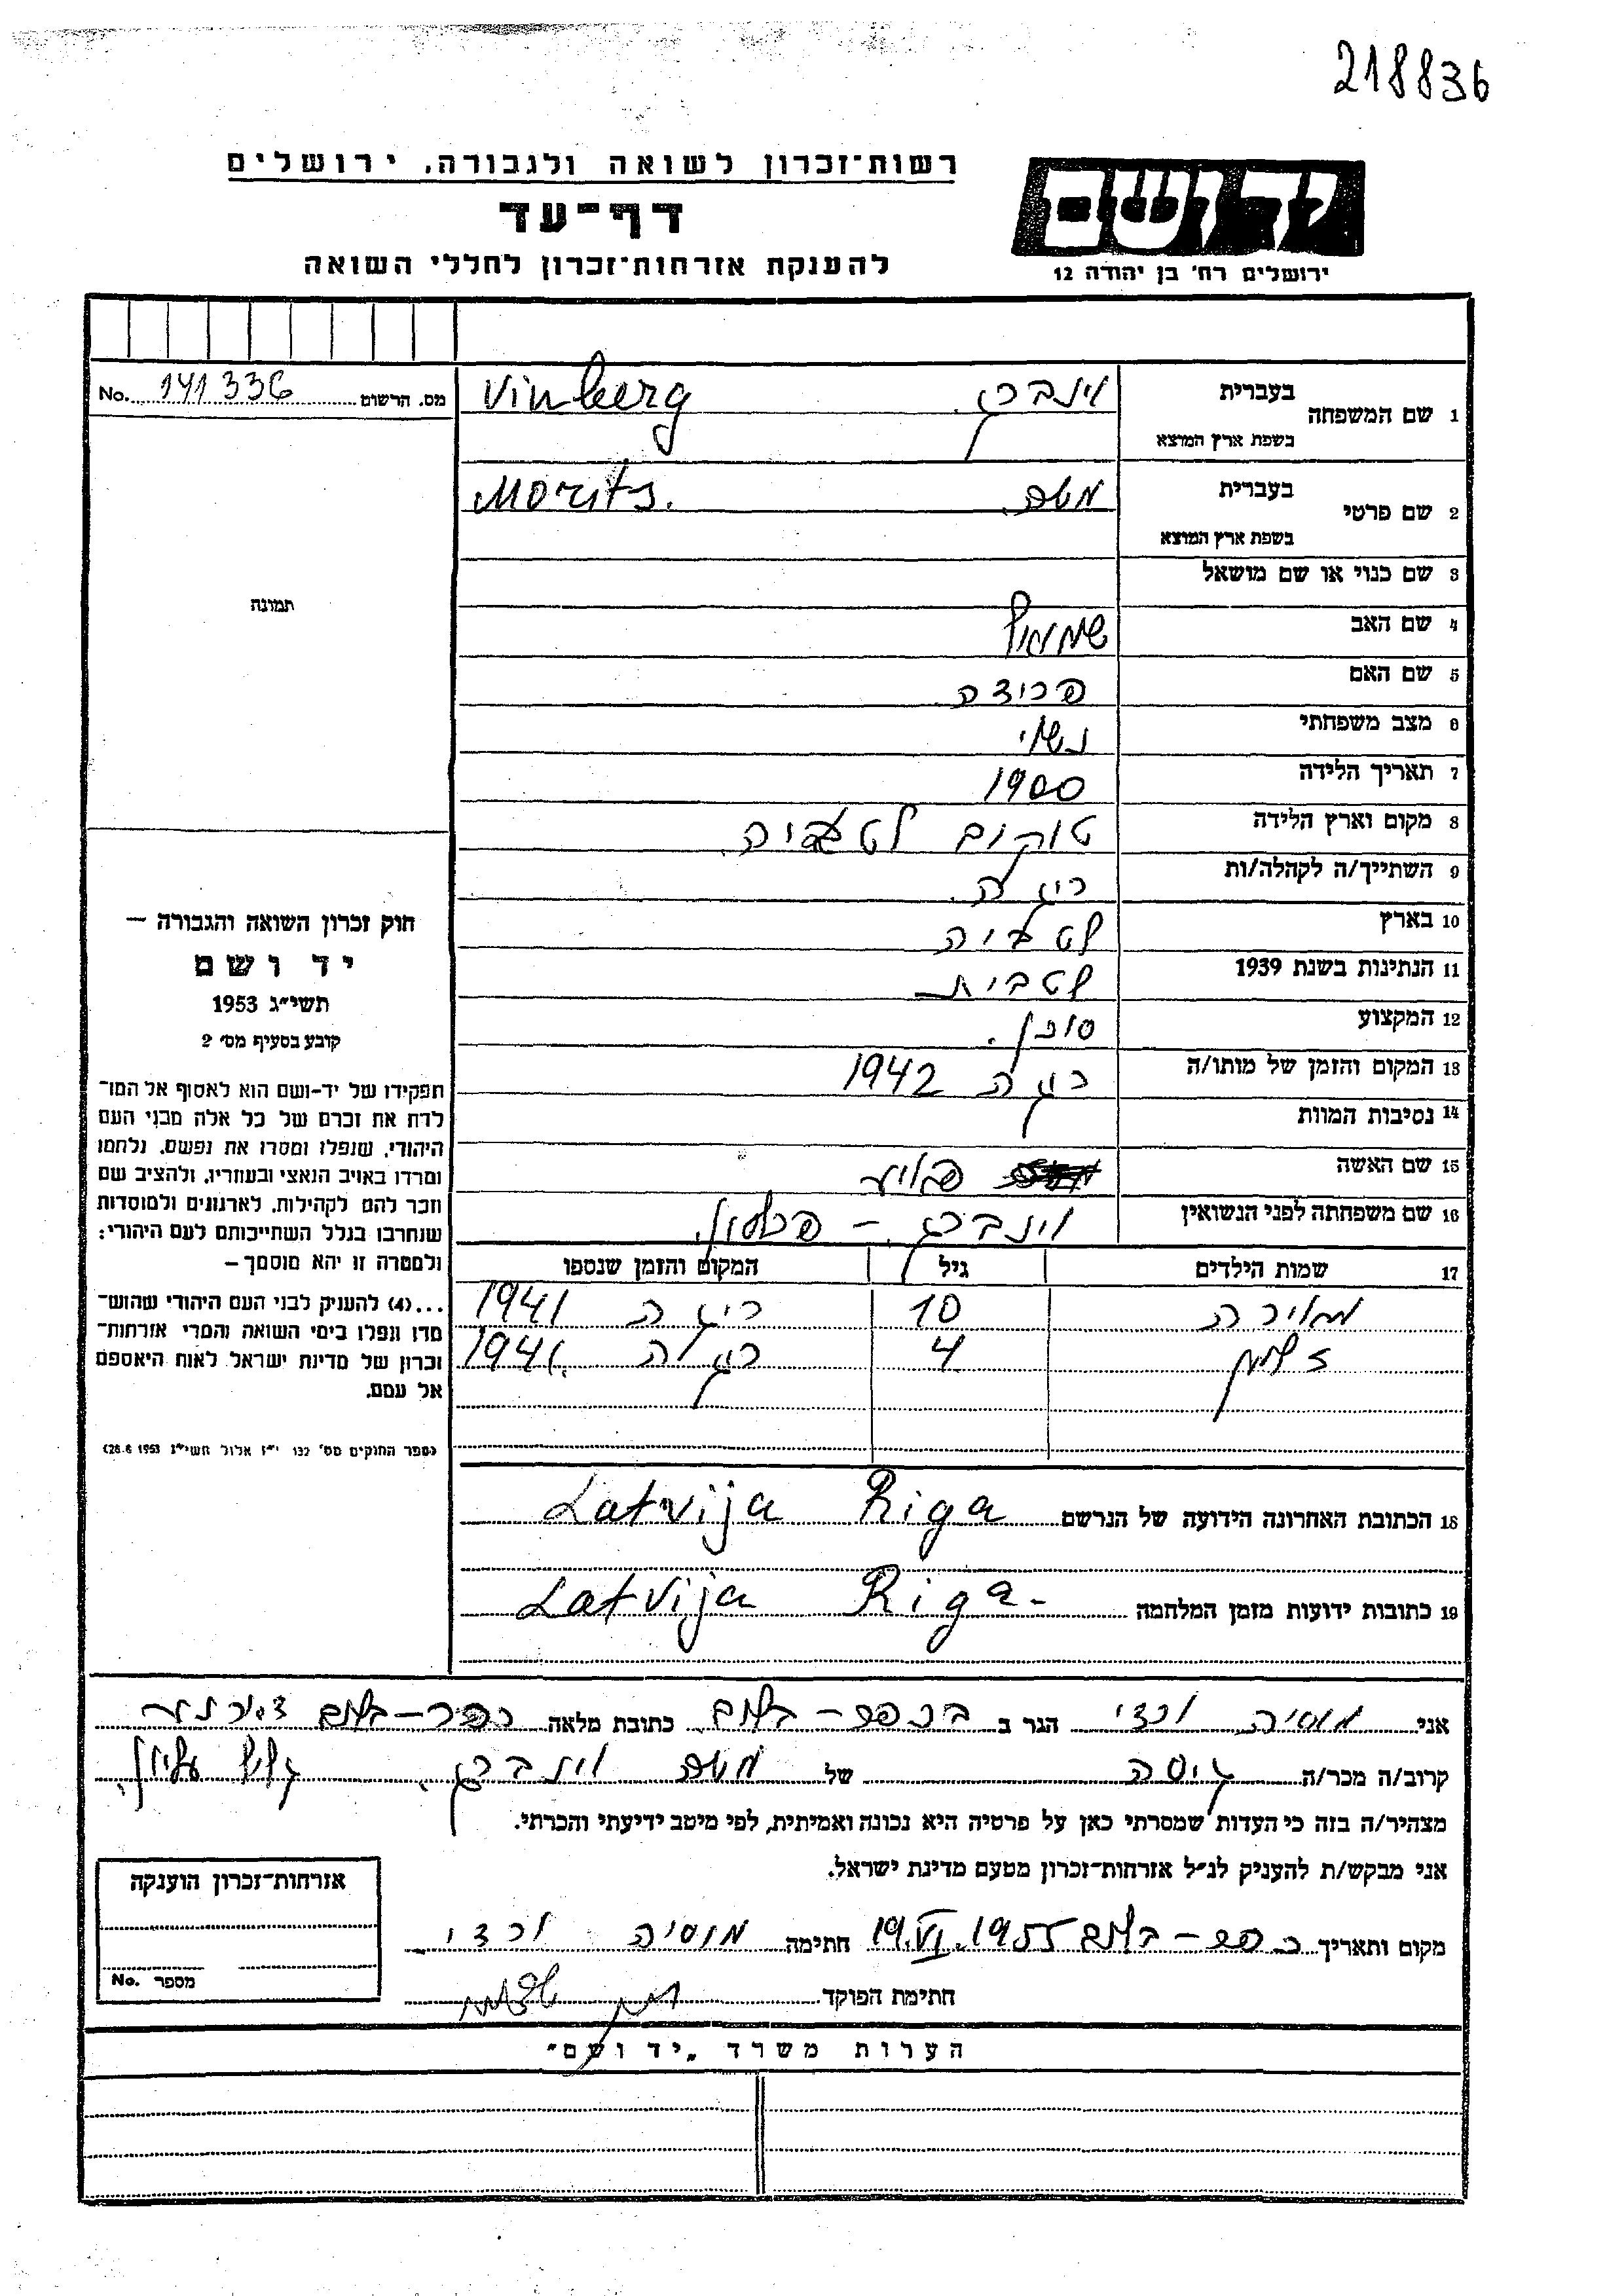 218836
רשות־זכרון לשואה ולגבורה, ירושלים
דף־עד
להענקת אזרחות־זכרון לחללי השואה
יד ושם
ירושלים רח' בן יהודה 12
No. 141336 מס. הרשום
תמונה
חוק זכרון השואה והגבורה —
יד ושם
תשי״ג 1953
קובע בסעיף מס' 2
תפקידו של יד-ושם הוא לאסוף אל המו־
לדת את זכרם של כל אלה מבני העם
היהודי, שנפלו ומסרו את נפשם, נלחמו
ומרדו באויב הנאצי ובעוזריו, ולהציב שם
וזכר להם לקהילות, לארגונים ולמוסדות
שנחרבו בגלל השתייכותם לעם היהודי;
ולמטרה זו יהא מוסמך —
...(4) להעניק לבני העם היהודי שהוש־
מדו ונפלו בימי השואה והמרי אזרחות־
זכרון של מדינת ישראל לאות היאספם
אל עמם.
(ספר החוקים מס' 132 י״ז אלול תשי״ג 28.8.1953)
1 שם המשפחה בעברית וינברג Vinberg
בשפת ארץ המוצא
2 שם פרטי בעברית Morits.
בשפת ארץ המוצא
3 שם כנוי או שם מושאל
4 שם האב שמואל
5 שם האם
6 מצב משפחתי נשוי
7 תאריך הלידה 1900
8 מקום וארץ הלידה טוקום לטביה.
9 השתייך/ה לקהלה/ות ריגה.
10 בארץ לטביה
11 הנתינות בשנת 1939 לטבית
12 המקצוע סוכן.
13 המקום והזמן של מותו/ה ריגה 1942
14 נסיבות המוות
15 שם האשה
16 שם משפחתה לפני הנשואין וינברג –
17 שמות הילדים גיל המקום והזמן שנספו
מאירה 10 ריגה 1941
זלמן 4 ריגה 1941.
18 הכתובת האחרונה הידועה של הנרשם Riga Latvija
19 כתובות ידועות מזמן המלחמה Riga - Latvija
אני מוסיה ורדי הגר ב בכפר-בלום כתובת מלאה כפר-בלום
קרוב/ה מכר/ה גיסה של וינברג. גליל עליון.
מצהיר/ה בזה כי העדות שמסרתי כאן על פרטיה היא נכונה ואמיתית, לפי מיטב ידיעתי והכרתי.
אני מבקש/ת להעניק לנ״ל אזרחות־זכרון מטעם מדינת ישראל.
מקום ותאריך כפר-בלום 19.VI.1955 חתימה מוסיה ורדי
חתימת הפוקד
אזרחות־זכרון הוענקה
מספר No.
הערות משרד „יד ושם״